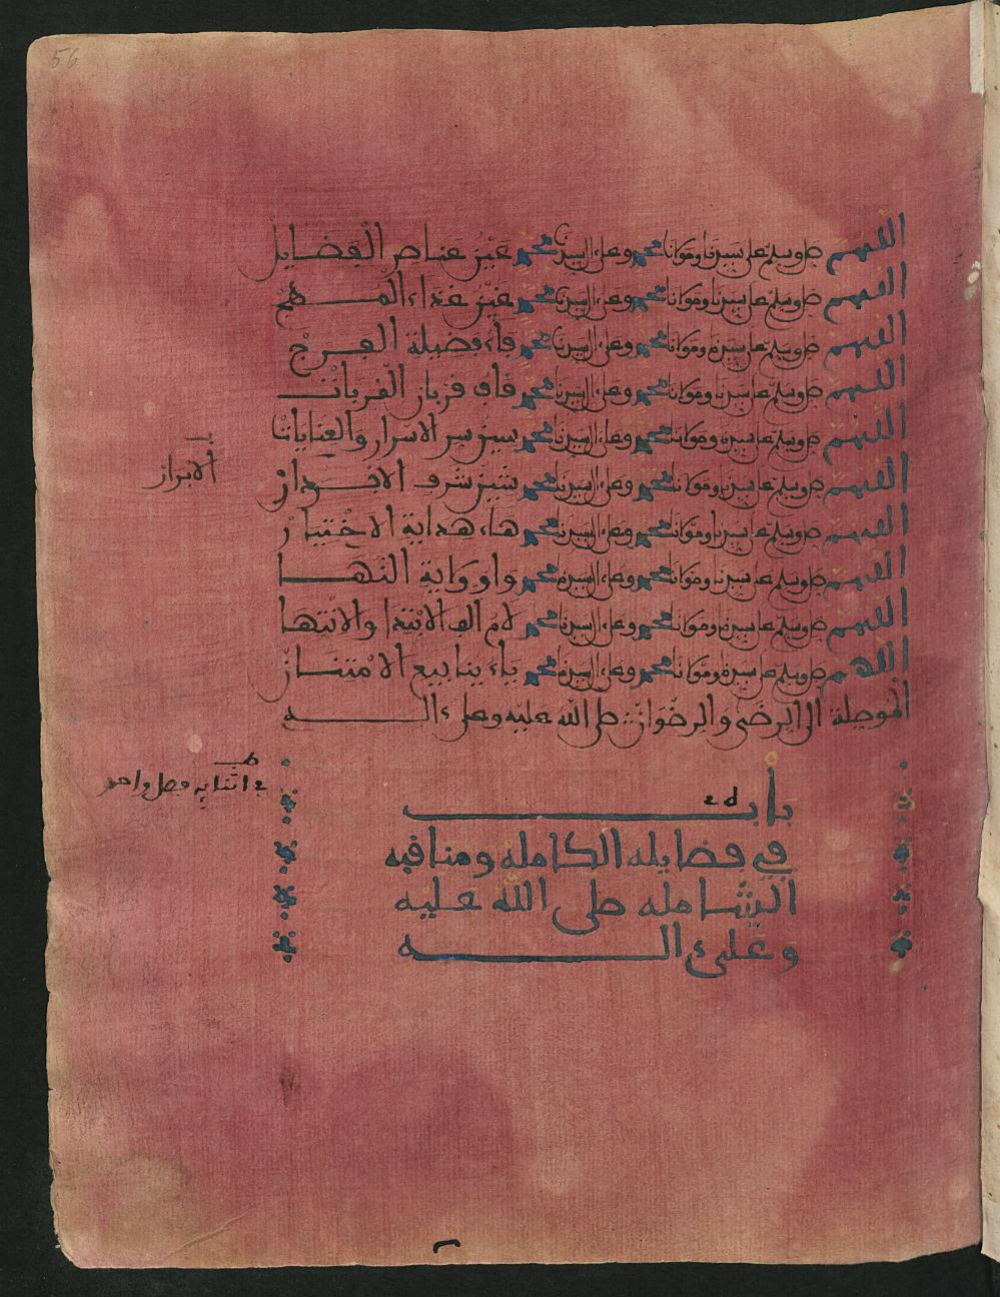 56
اللهم صل وسلم على سيدنا ومولانا محمد وعلى ءال سيدنا محمد عين عناصر الفضايل
اللهم صل وسلم على سيدنا ومولانا محمد وعلى ءال سيدنا محمد غين غذاء المهم
اللهم صل وسلم على سيدنا ومولانا محمد وعلى ءال سيدنا محمد فاء فضيلة الفرج
اللهم صل وسلم على سيدنا ومولانا محمد وعلى ءال سيدنا محمد قاف قربان القربات
اللهم صل وسلم على سيدنا ومولانا محمد وعلى ءال سيدنا محمد سين سر الاسرار والعنايات
الابرار
اللهم صل وسلم على سيدنا ومولانا محمد وعلى ءال سيدنا محمد شين شرف الاقدار
اللهم صل وسلم على سيدنا ومولانا محمد وعلى ءال سيدنا محمد هاء هداية الاختيار
اللهم صل وسلم على سيدنا ومولانا محمد وعلى ءال سيدنا محمد واو وقاية النها
اللهم صل وسلم على سيدنا ومولانا محمد وعلى ءال سيدنا محمد لام الف الابتدا والانتها
اللهم صل وسلم على سيدنا ومولانا محمد وعلى ءال سيدنا محمد ياء ينابيع الامتنان
الموصلة الى الرضى والرضوان صلى الله عليه وعلى ءاله
باب
في فضايله الكامله ومناقبه
الشامله صلى الله عليه
وعلى ءاله